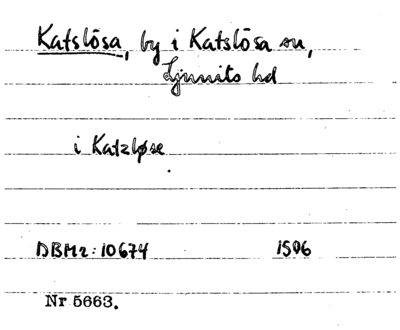 Katslösa, by i Katslösa sn,
Ljunits hd
i Katzløse
DBM2: 10674 1506
Nr 5663.